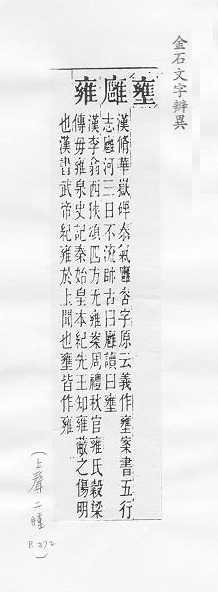 金石文字辨異
壅廱雍
漢脩華嶽碑泰氣廱否字原云義作壅案書五行
志廱河三日不流師古曰廱讀曰壅
漢李翕西狹頌四方无雍案周禮秋官雍氏穀梁
傳毋雍泉史記秦始皇本紀先王知雍蔽之傷明
也漢書武帝紀雍於上聞也壅皆作雍
(上聲二腫 P.272)